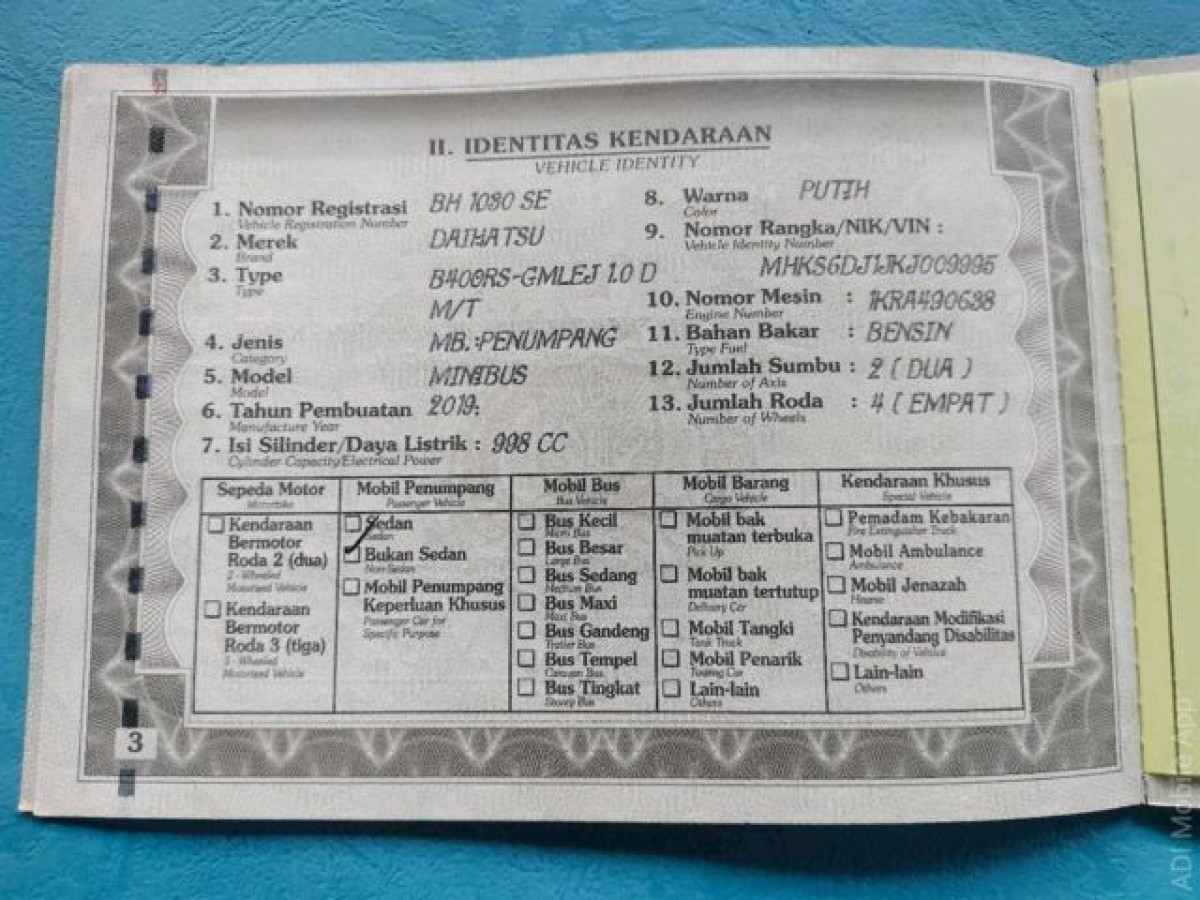 II. IDENTITAS KENDARAAN
VEHICLE IDENTITY
1. Nomor Registrasi BH 1080 SE
Vehicle Registration Number
2. Merek DAIHATSU
Brand
3. Type B400RS-GMLEJ 1.0 D
Type
M/T
4. Jenis MB. PENUMPANG
Category
5. Model MINIBUS
Model
6. Tahun Pembuatan 2019
Manufacture Year
7. Isi Silinder/Daya Listrik : 998 CC
Cylinder Capacity/Electrical Power
8. Warna PUTIH
Color
9. Nomor Rangka/NIK/VIN :
Vehicle Identity Number
MHKS6DJ1JKJ009995
10. Nomor Mesin : 1KRA490638
Engine Number
11. Bahan Bakar : BENSIN
Type Fuel
12. Jumlah Sumbu : 2 ( DUA )
Number of Axis
13. Jumlah Roda : 4 ( EMPAT )
Number of Wheels
Sepeda Motor
Motorbike
Kendaraan
Bermotor
Roda 2 (dua)
2 - Wheeled
Motorized Vehicle
Kendaraan
Bermotor
Roda 3 (tiga)
3 - Wheeled
Motorized Vehicle
Mobil Penumpang
Passenger Vehicle
Sedan
Sedan
Bukan Sedan
Non-Sedan
Mobil Penumpang
Keperluan Khusus
Passenger Car for
Specific Purpose
Mobil Bus
Bus Vehicle
Bus Kecil
Micro Bus
Bus Besar
Large Bus
Bus Sedang
Medium Bus
Bus Maxi
Maxi Bus
Bus Gandeng
Trailer Bus
Bus Tempel
Caravan Bus
Bus Tingkat
Storey Bus
Mobil Barang
Cargo Vehicle
Mobil bak
muatan terbuka
Pick Up
Mobil bak
muatan tertutup
Delivery Car
Mobil Tangki
Tank Truck
Mobil Penarik
Towing Car
Lain-lain
Others
Kendaraan Khusus
Special Vehicle
Pemadam Kebakaran
Fire Extinguisher Truck
Mobil Ambulance
Ambulance
Mobil Jenazah
Hearse
Kendaraan Modifikasi
Penyandang Disabilitas
Disability of Vehicle
Lain-lain
Others
3
ADI Mobile App